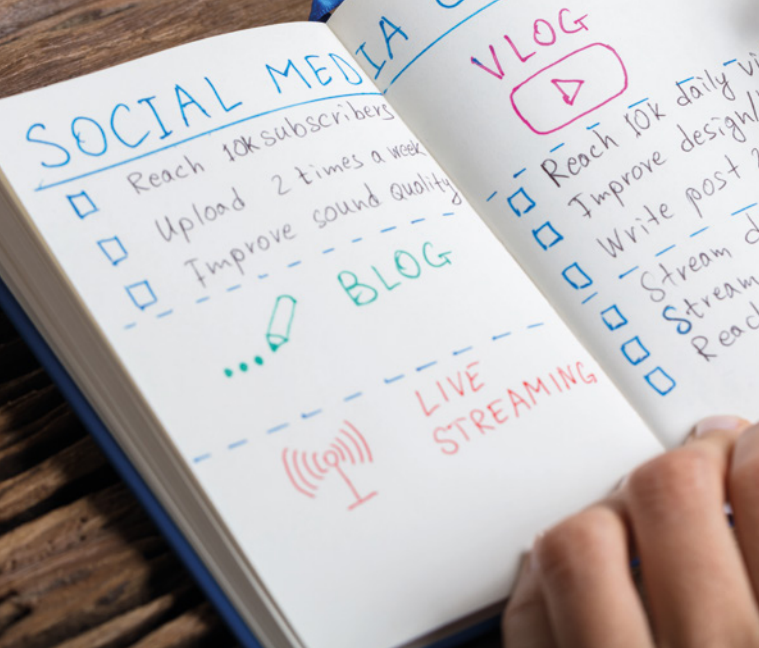 SOCIAL MEDIA
Reach 10k subscribers
Upload 2 times a week
Improve sound quality
BLOG
LIVE
STREAMING
VLOG
Reach 10k daily
Improve design/
Write post
Stream
Stream